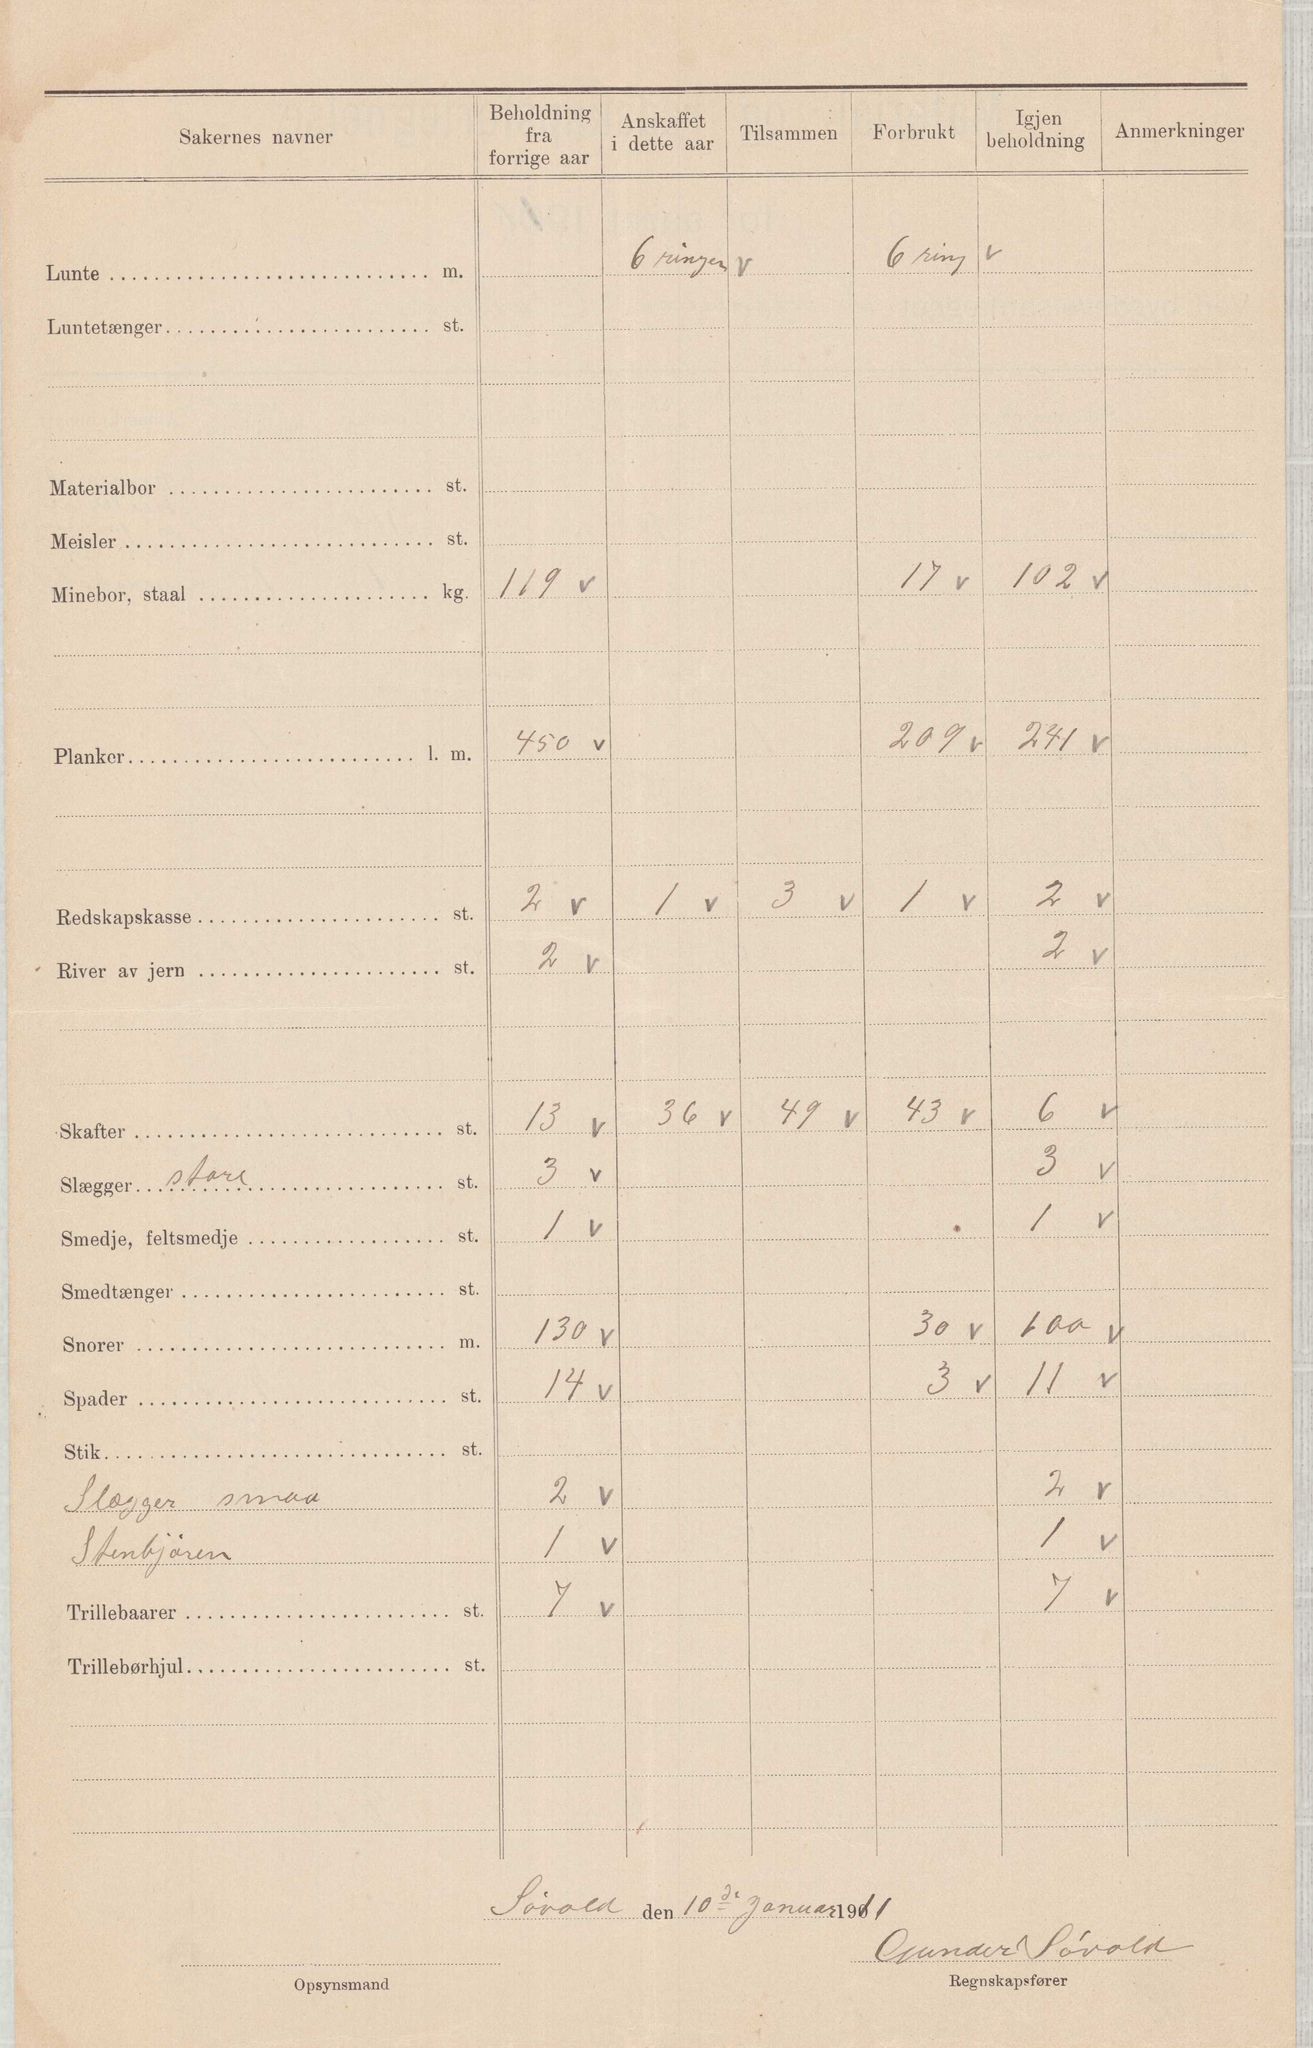 Sakernes navner | Beholdning fra forrige aar | Anskaffet i dette aar | Tilsammen | Forbrukt | Igjen beholdning | Anmerkninger
Lunte m. | | 6 ringer v | | 6 ring v
Luntetænger st.
Materialbor st.
Meisler st.
Minebor, staal kg. | 119 v | | | 17 v | 102 v
Planker l. m. | 450 v | | | 209 v | 241 v
Redskapskasse st. | 2 v | 1 v | 3 v | 1 v | 2 v
River av jern st. | 2 v | | | | 2 v
Skafter st. | 13 v | 36 v | 49 v | 43 v | 6 v
Slægger store st. | 3 v | | | | 3 v
Smedje, feltsmedje st. | 1 v | | | | 1 v
Smedtænger st.
Snorer m. | 130 v | | | 30 v | 100 v
Spader st. | 14 v | | | 3 v | 11 v
Stik st.
Slægger smaa | 2 v | | | | 2 v
Stenbjøren | 1 v | | | | 1 v
Trillebaarer st. | 7 v | | | | 7 v
Trillebørhjul st.
Søvold den 10de Januar 1911
Gunder Søvold
Opsynsmand
Regnskapsfører